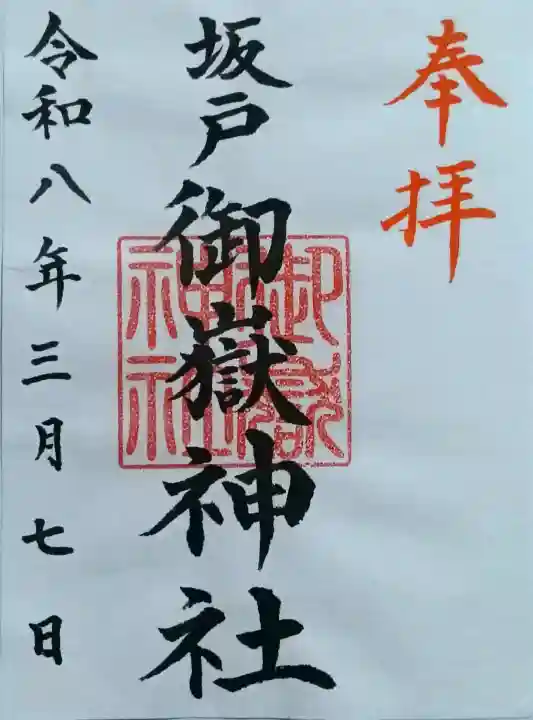 奉拝
坂戸御嶽神社
御嶽
神社
令和八年三月七日